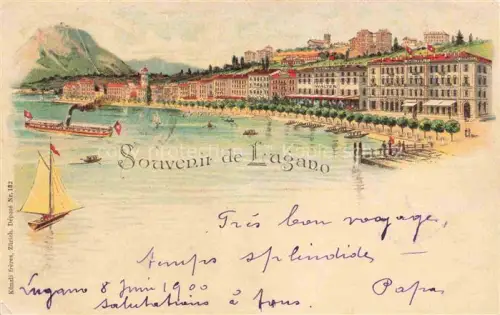 Souvenir de Lugano
Très bon voyage,
temps splendide
Lugano 8 Juin 1900
Papa
salutations à tous.
Künzli frères, Zürich. Déposé Nr. 182